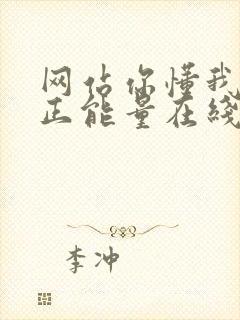 网估你懂我
正能量在线
李冲